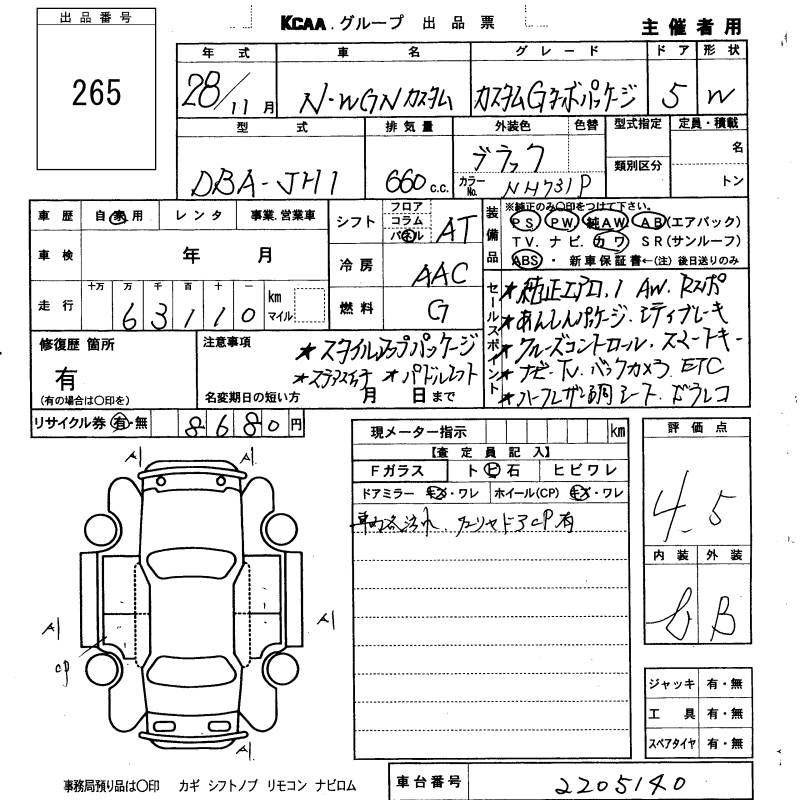 出品番号
265
KCAA.グループ 出品票
主催者用
年式 車名 グレード ドア 形状
28/11月 N-WGNカスタム カスタムGターボパッケージ 5 W
型式 排気量 外装色 色替 型式指定 定員・積載
DBA-JH1 660c.c. ブラック
カラーNo. NH731P
類別区分 名
トン
車歴 自家用 レンタ 事業.営業車
車検 年 月
走行 十万 万 千 百 十 km マイル
63110
シフト フロア コラム パネル AT
冷房 AAC
燃料 G
装備品 ※純正のみ○印をつけて下さい。
PS PW 純AW. AB(エアバック)
TV. ナビ. カワ SR(サンルーフ)
ABS ・ 新車保証書←(注) 後日送りのみ
セールスポイント
★純正エアロ. 1 AW. Rスポ
★あんしんパッケージ. シティブレーキ
★クルーズコントロール. スマートキー
★ナビ. TV. バックカメラ. ETC
★ハーフレザー調シート. ドラレコ
修復歴 箇所
有
(有の場合は○印を)
注意事項
★スタイルアップパッケージ
★ステアスイッチ ★パドルシフト
名変期日の短い方 月 日まで
リサイクル券 有・無 8680円
現メーター指示 km
【査定員記入】
Fガラス ト ビ 石 ヒビワレ
ドアミラー キズ・ワレ ホイール(CP) キズ・ワレ
CP有
評価点
4.5
内装 外装
b B
A1 A1
A1 A1
CP
A1
ジャッキ 有・無
工具 有・無
スペアタイヤ 有・無
事務局預り品は○印 カギ シフトノブ リモコン ナビロム
車台番号 2205140